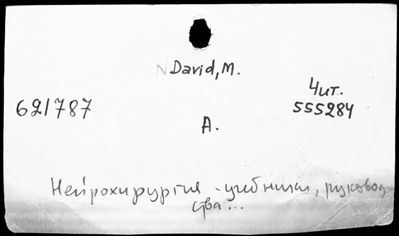 David, M.
621787
Чит.
555284
А.
Нейрохирургия - учебники, руковод
ства...